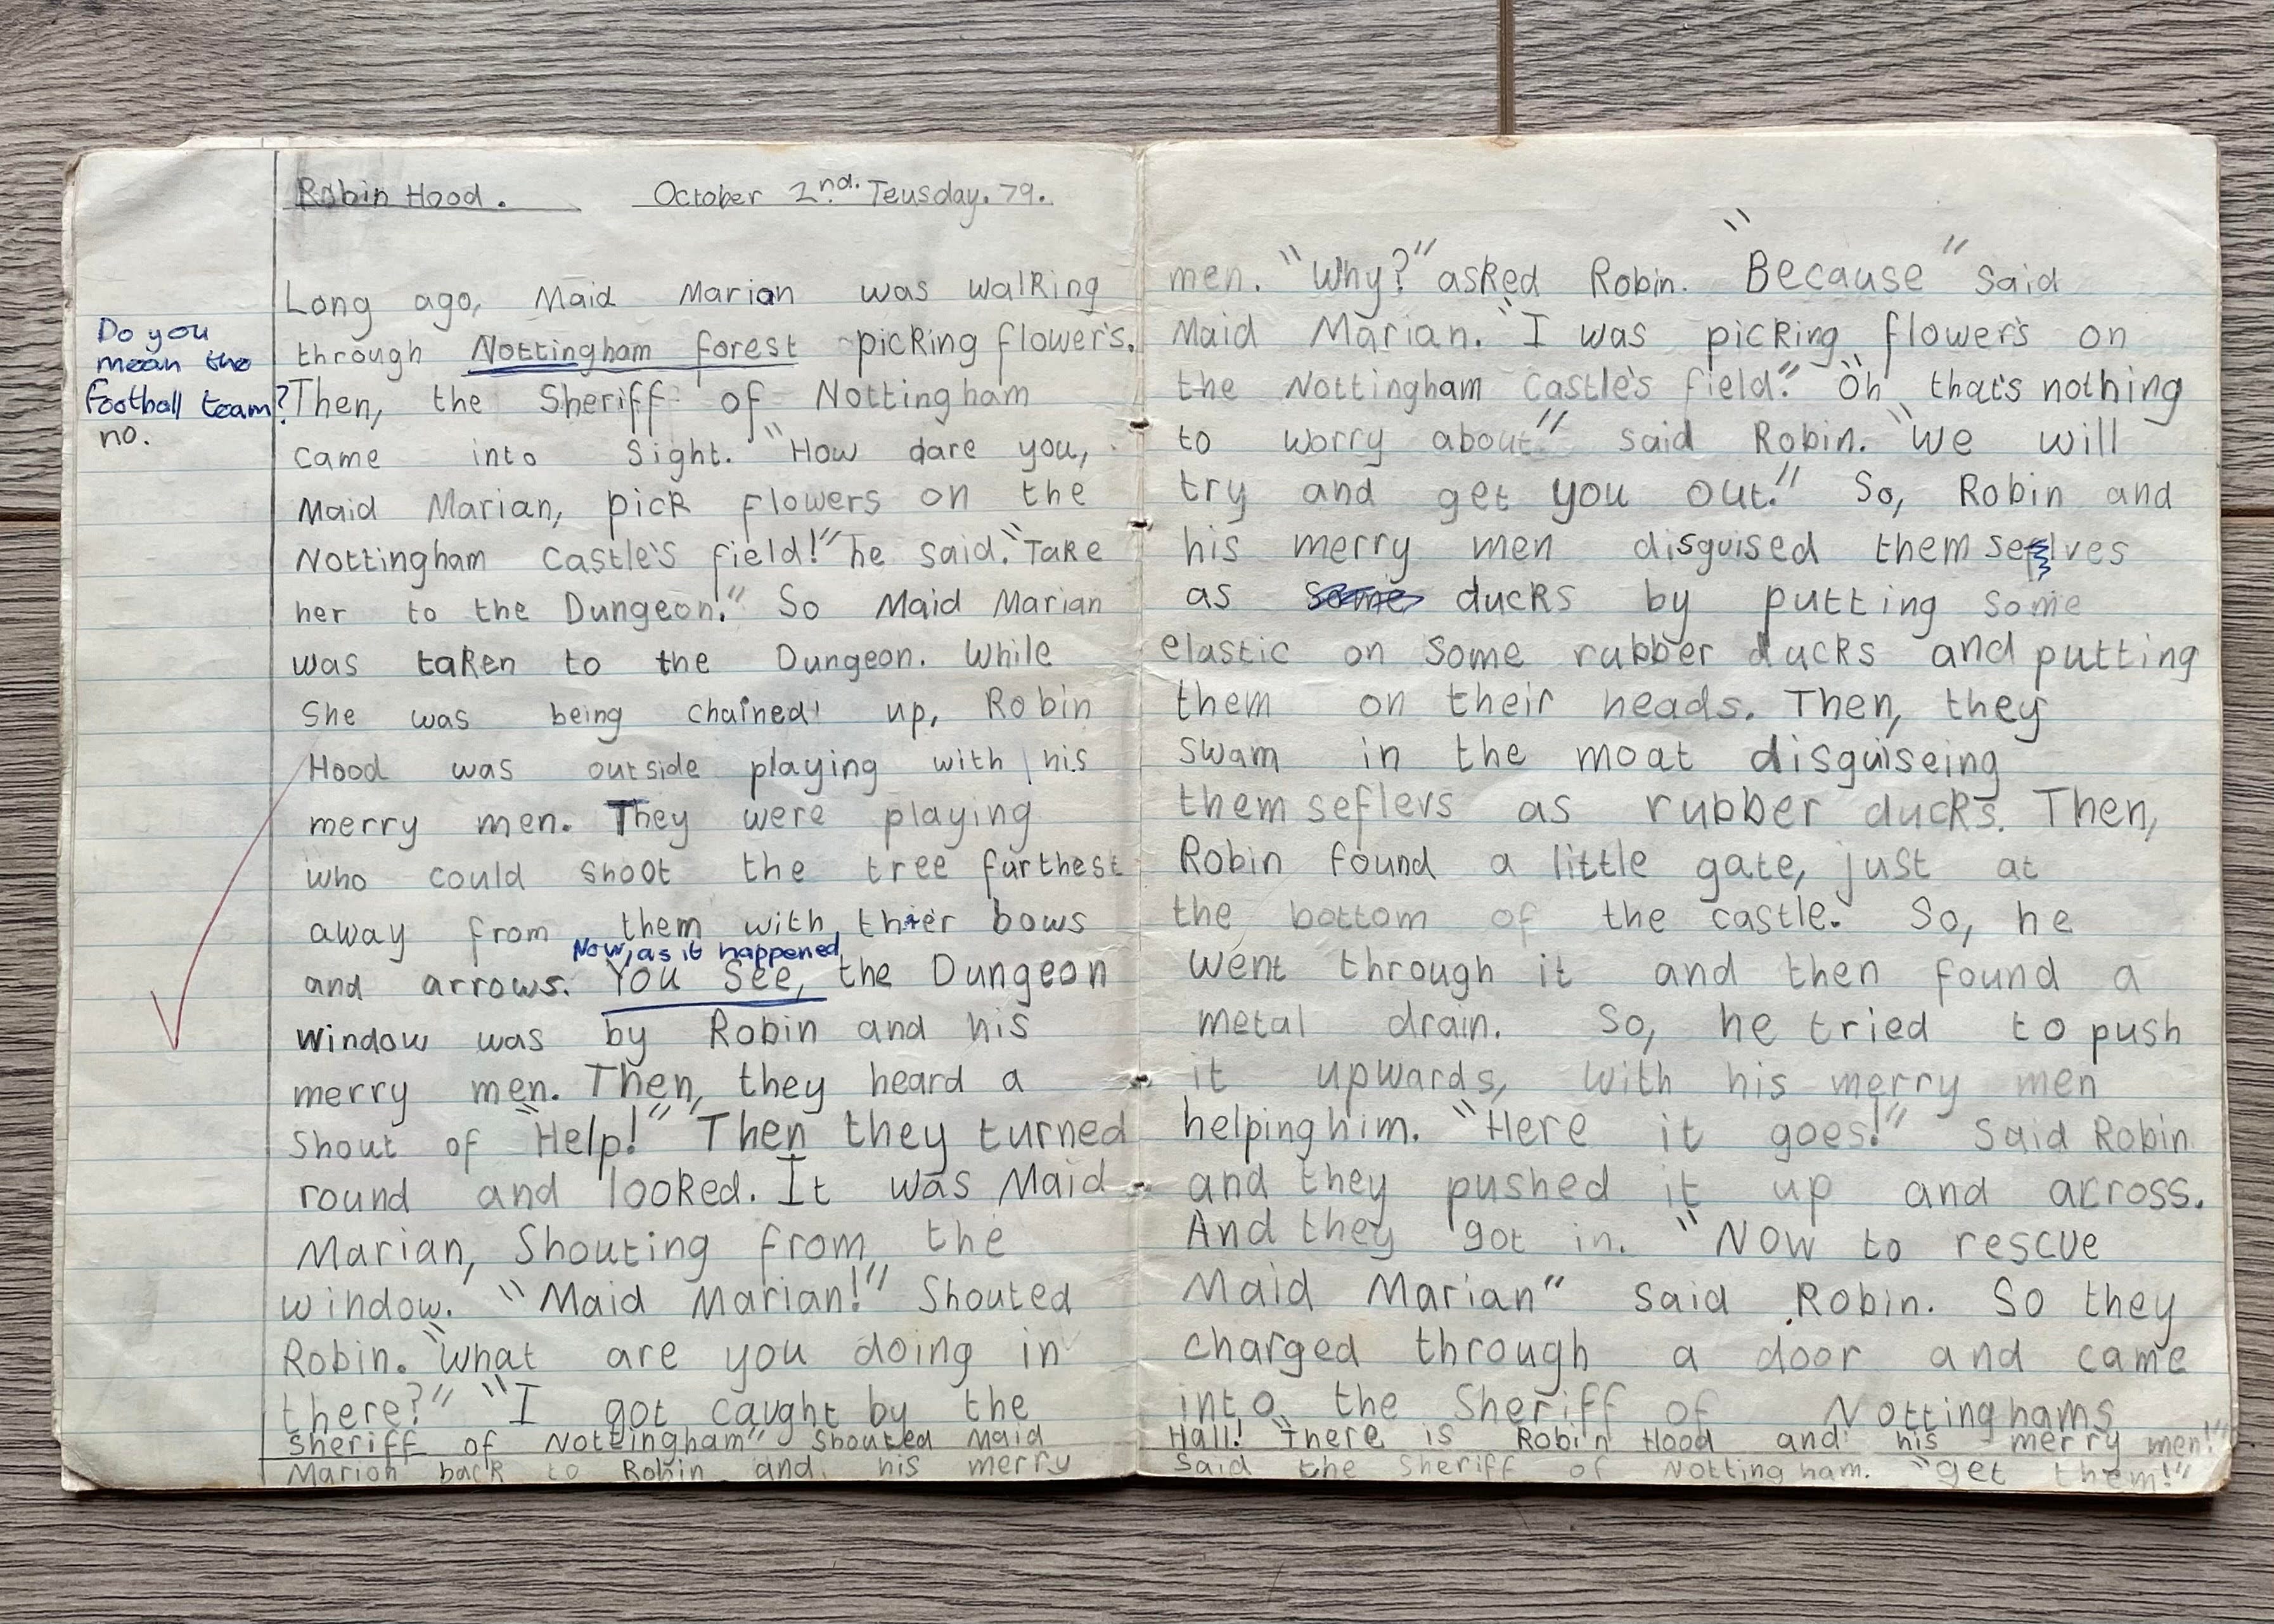 Robin Hood. October 2nd. Teusday. 79.
Long ago, Maid Marian was walking
through Nottingham forest picking flower's.
Do you
mean the
football team?
no.
Then, the Sheriff of Nottingham
came into Sight. "How dare you,
Maid Marian, pick flowers on the
Nottingham Castle's field!" he said. "Take
her to the Dungeon." So Maid Marian
was taken to the Dungeon. While
She was being chained up, Robin
Hood was outside playing with his
merry men. They were playing
who could shoot the tree furthest
away from them with thier bows
Now, as it happened
and arrows. You See, the Dungeon
window was by Robin and his
merry men. Then, they heard a
Shout of "Help!" Then they turned
round and looked. It was Maid
Marian, Shouting from the
window. "Maid Marian!" Shouted
Robin. "What are you doing in
there?" "I got caught by the
Sheriff of Nottingham" Shouted Maid
Marion back to Robin and his merry
men. "Why?" asked Robin. "Because" Said
Maid Marian. "I was picking flower's on
the Nottingham Castle's field." "Oh that's nothing
to worry about" said Robin. "We will
try and get you out." So, Robin and
his merry men disguised themselves
as some ducks by putting some
elastic on some rubber ducks and putting
them on their heads. Then, they
swam in the moat disguiseing
themseflevs as rubber ducks. Then,
Robin found a little gate, just at
the bottom of the castle. So, he
went through it and then found a
metal drain. So, he tried to push
it upwards, with his merry men
helping him. "Here it goes!" Said Robin
and they pushed it up and across.
And they got in. "Now to rescue
Maid Marian" said Robin. So they
charged through a door and came
into the Sheriff of Nottinghams
Hall! "There is Robin Hood and his merry men!"
Said the Sheriff of Nottingham. "get them!"